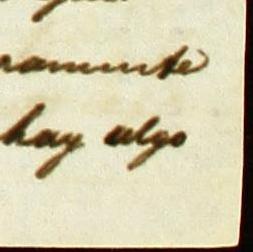 ramente
hay algo